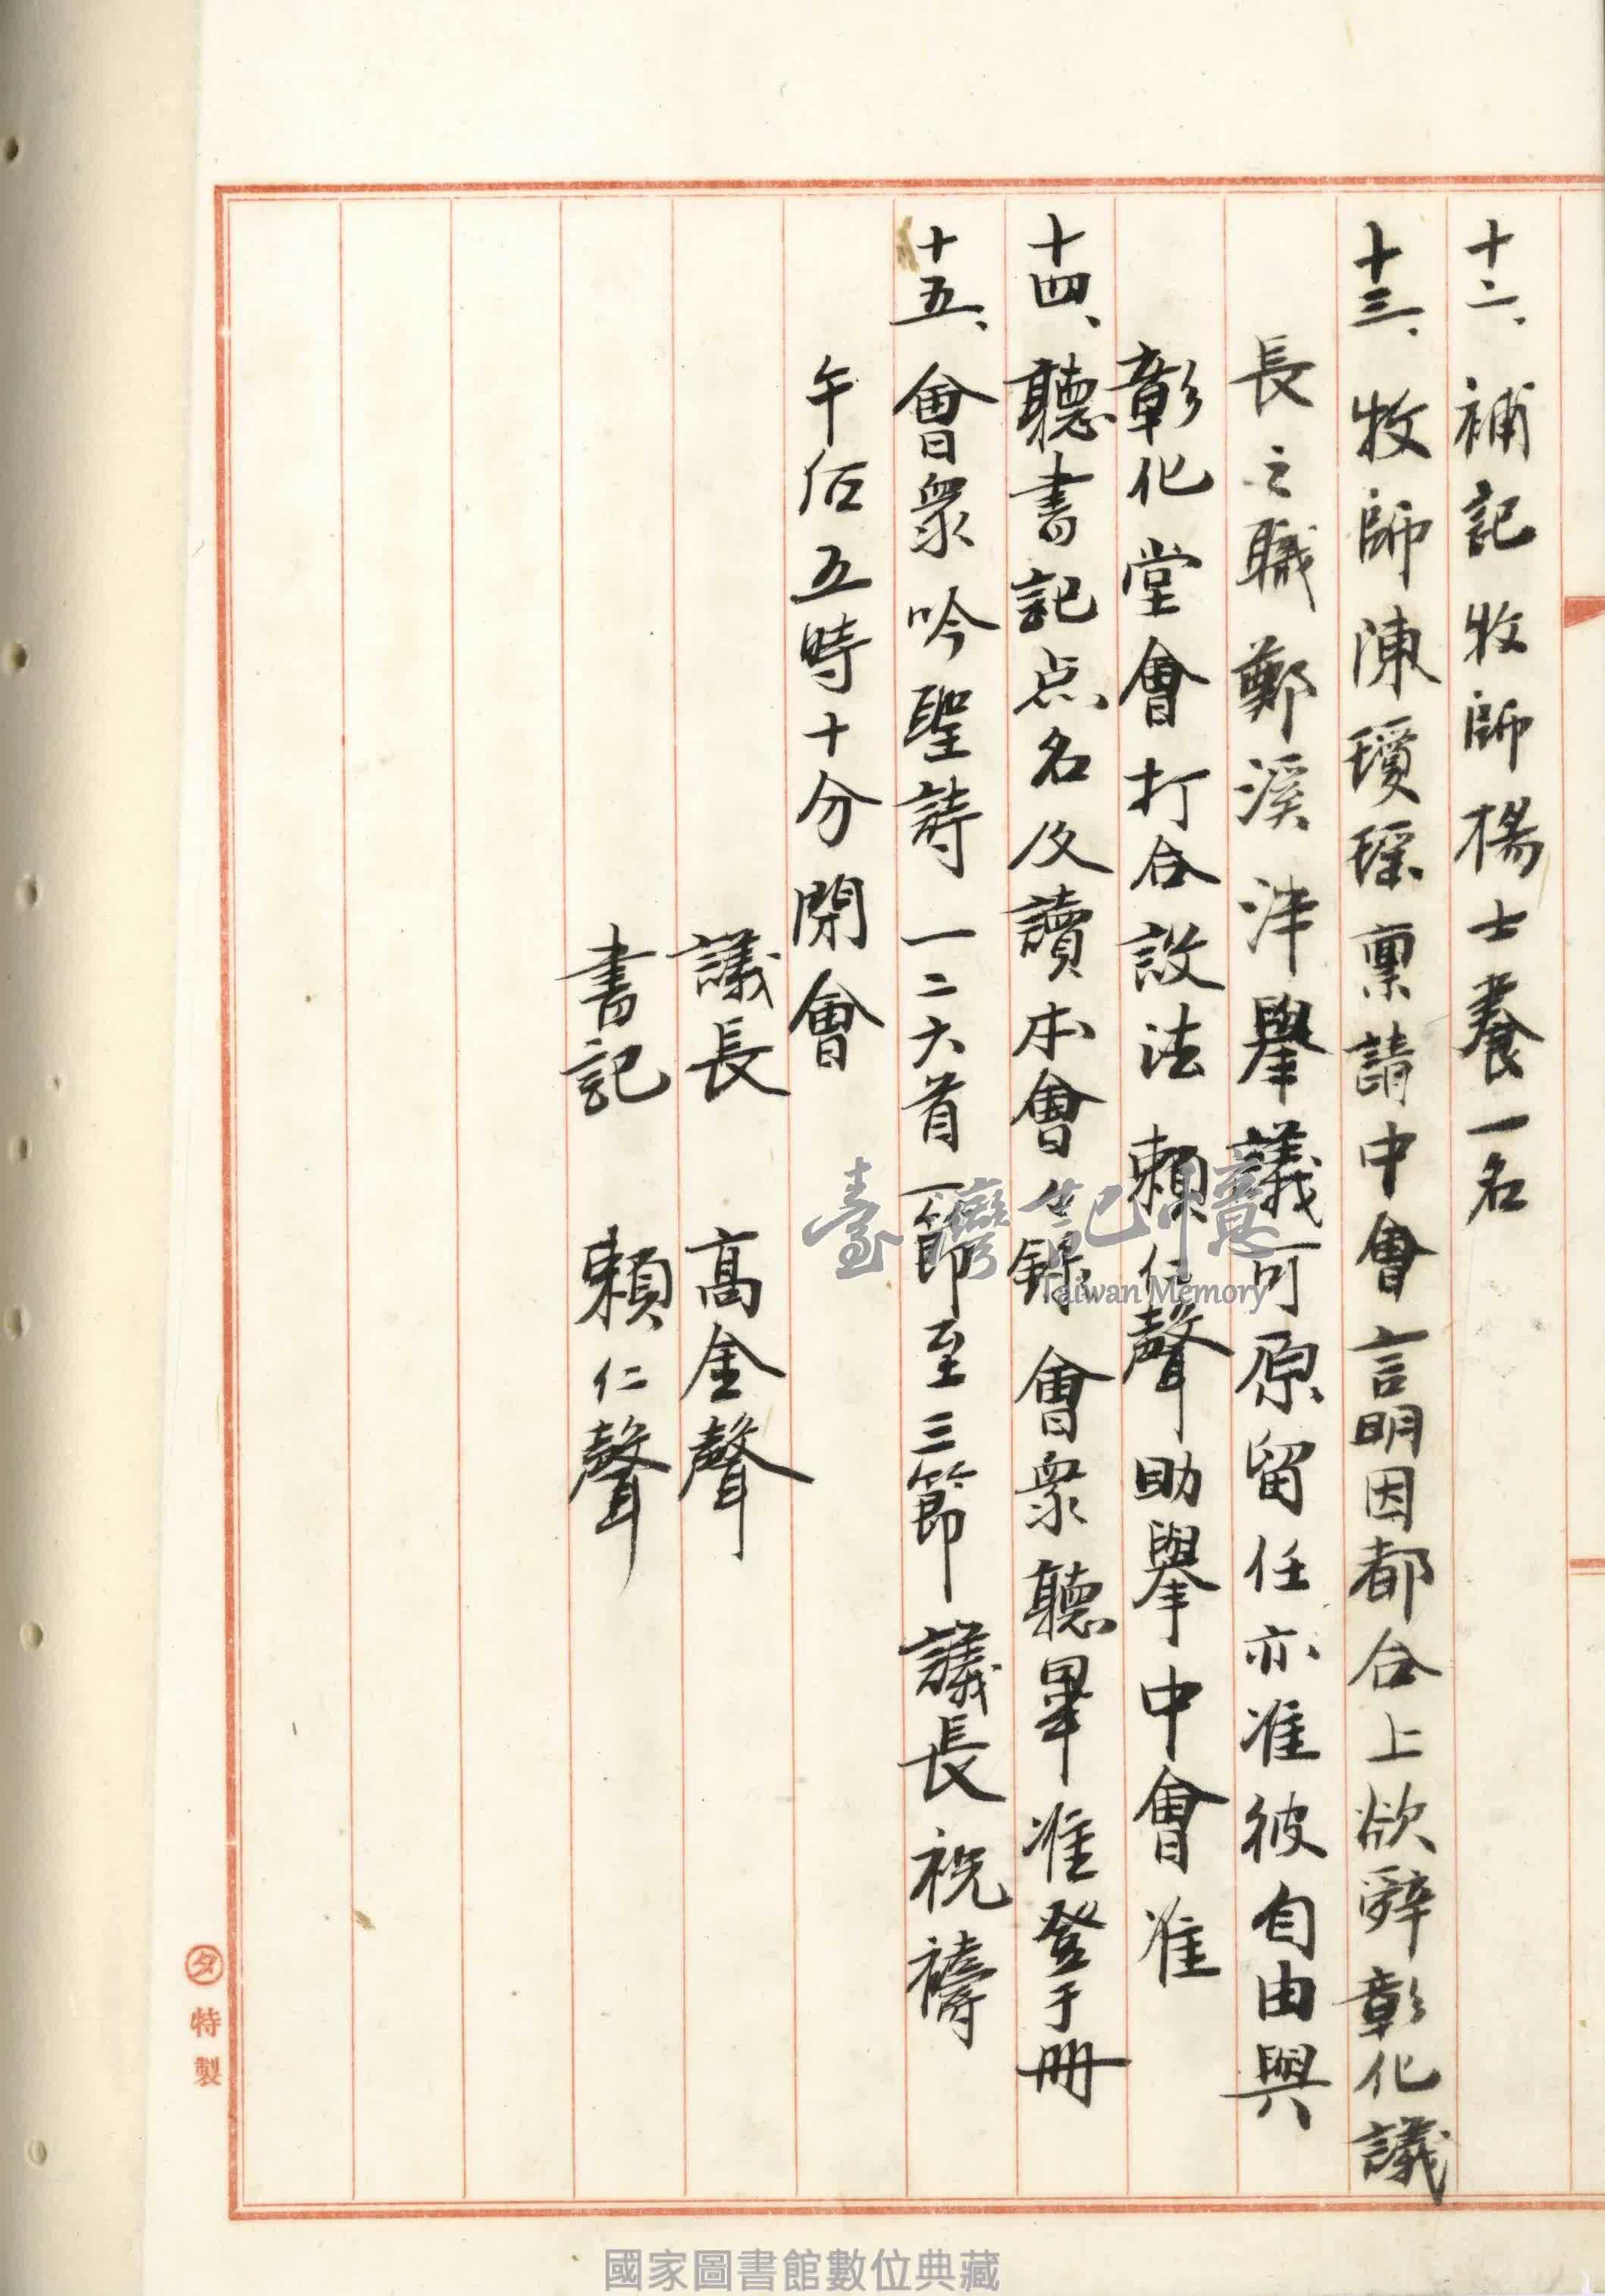 十二、補記牧師楊士養一名
十三、牧師陳瓊瑤稟請中會言明因都合上欲辭彰化議
長之職鄭溪泮舉議可原留任亦准彼自由與
彰化堂會打合設法賴仁聲助舉中會准
十四、聽書記点名及讀本會記錄會衆聽畢准登于冊
十五、會衆吟聖詩一二六首一節至三節議長祝禱
午后五時十分閉會
議長 高金聲
書記 賴仁聲
臺灣記憶
Taiwan Memory
タ特製
國家圖書館數位典藏